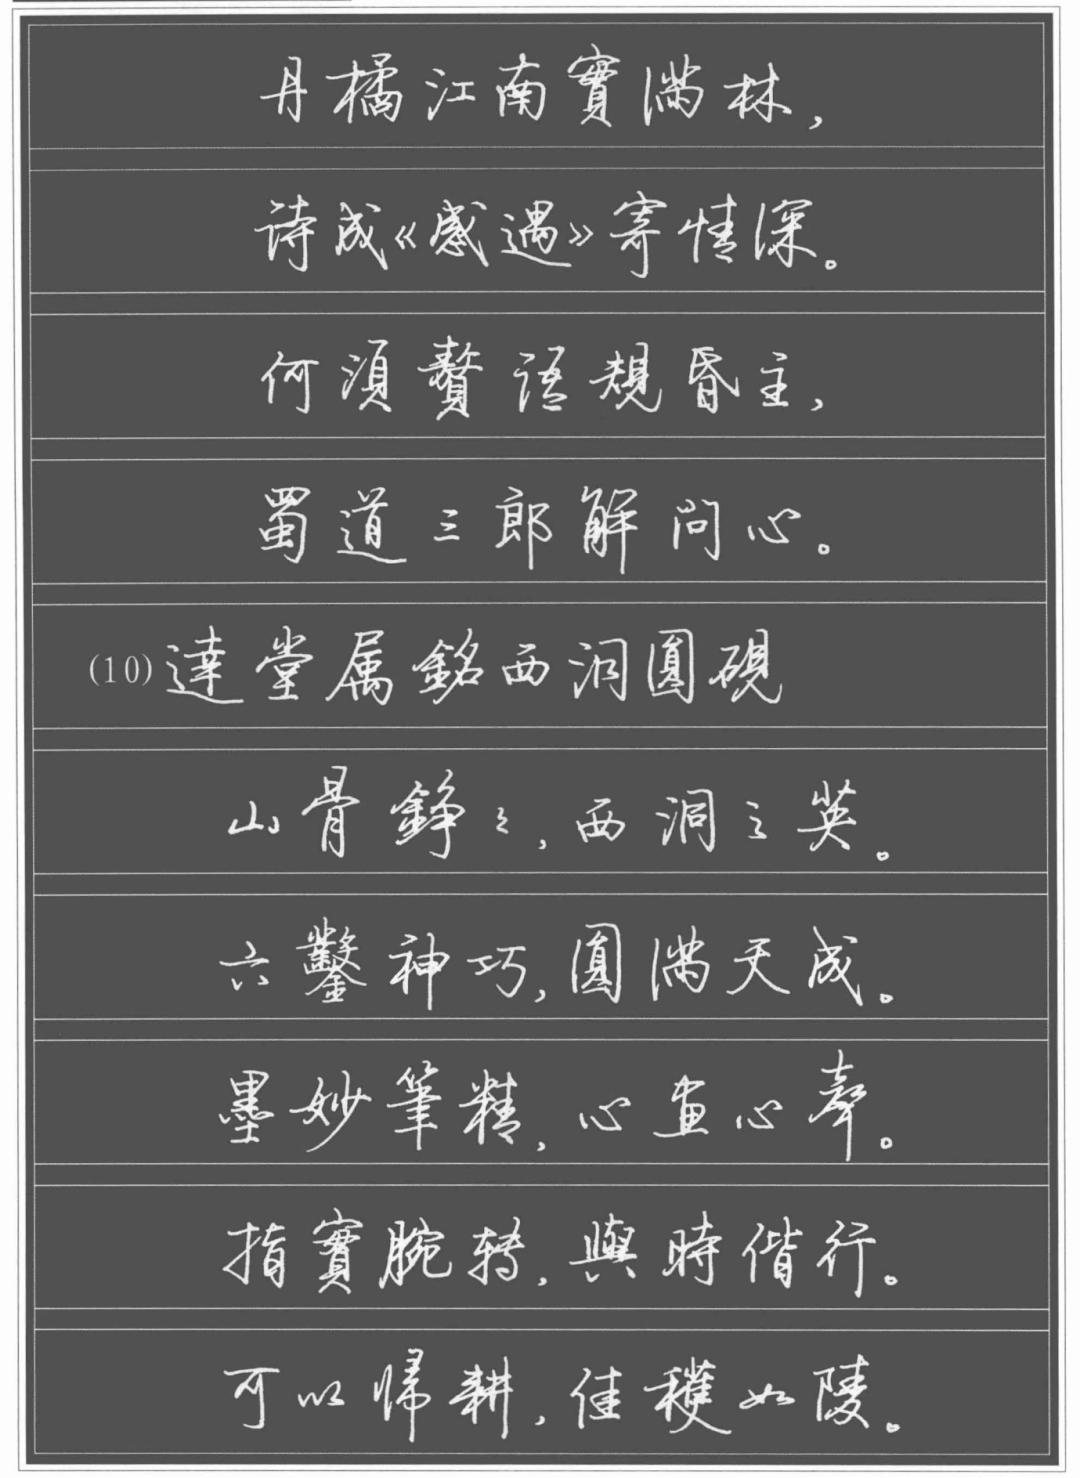 丹橘江南實滿林，
詩成《感遇》寄情深。
何須贅語規昏主，
蜀道三郎解問心。
(10)達堂属銘西洞圓硯
山骨錚々，西洞之英。
六鑿神巧，圓滿天成。
墨妙筆精，心畫心聲。
指實腕轉，與時偕行。
可以歸耕，佳穫如陵。